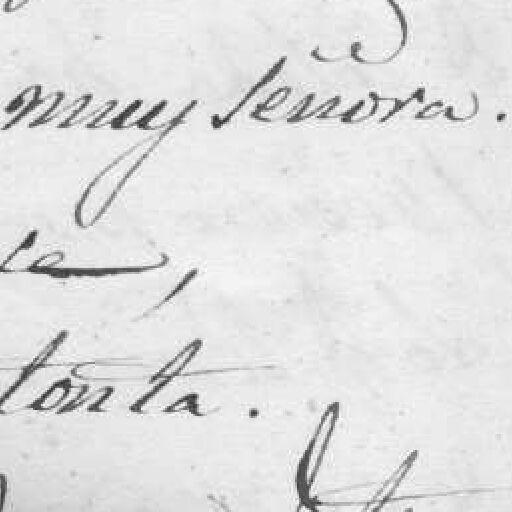 muy señora.
ce,
tonta.